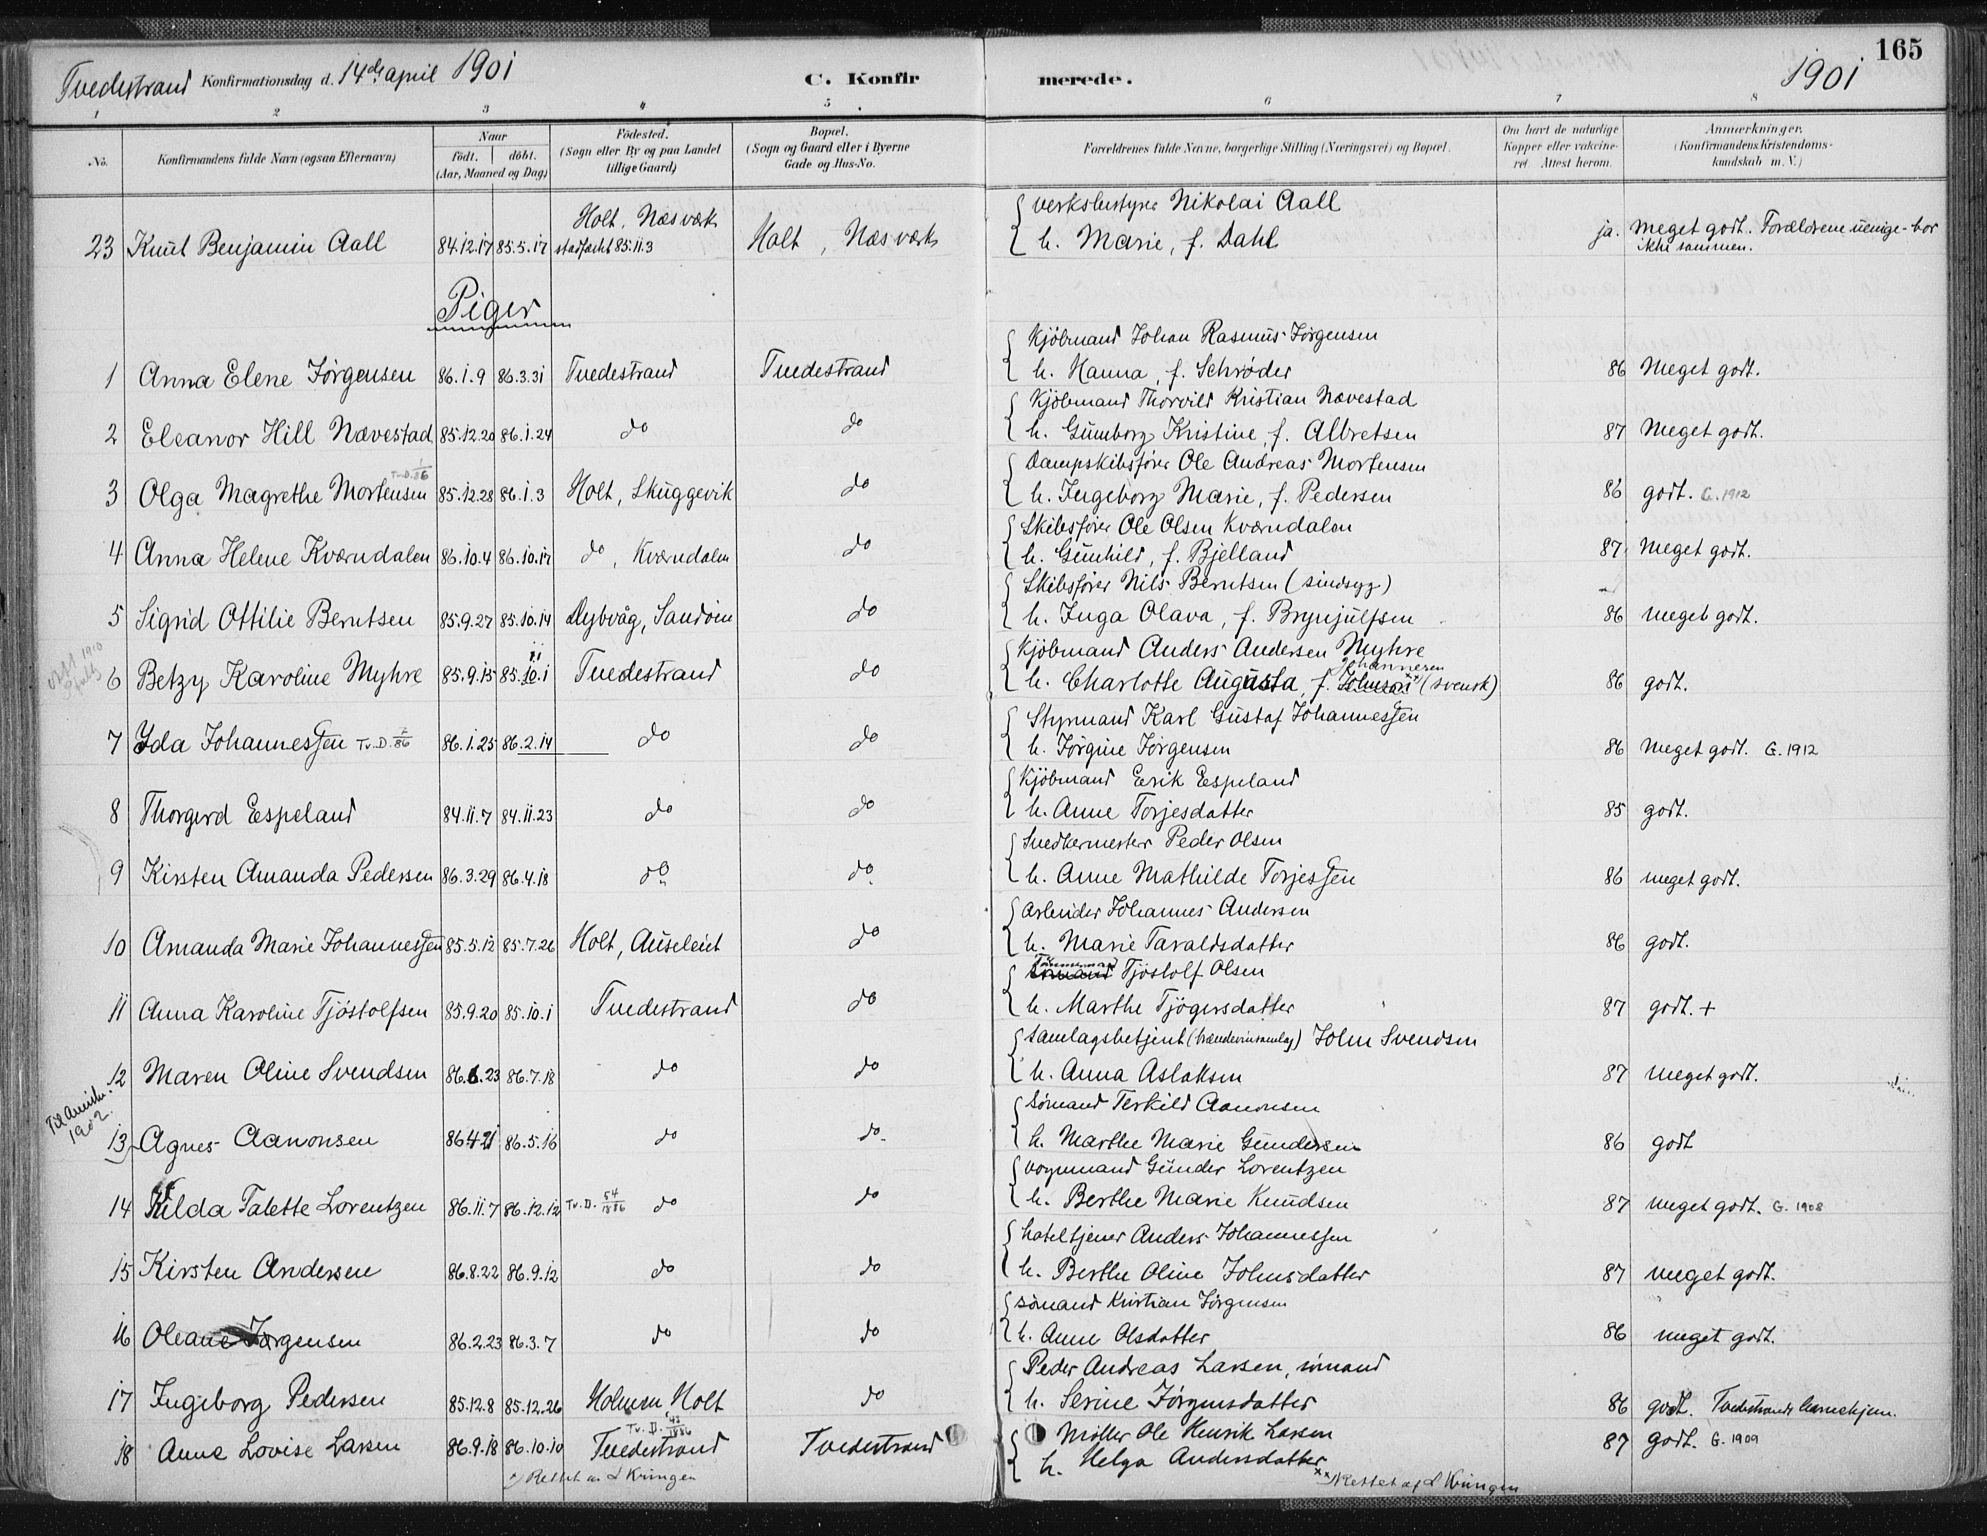 Tvedestrand Konfirmationsdag d. 14de april 1901 C. Konfir merede. 1901 165
1 2 3 4 5 6 7 8
No. Konfirmandens fulde Navn (ogsaa Efternavn) Naar født. døbt. (Aar, Maaned og Dag) Födested. (Sogn eller By og paa Landet tillige Gaard) Bopæl. (Sogn og Gaard eller i Byerne Gade og Hus-No. Forældrenes fulde Navne, borgerlige Stilling (Næringsvei) og Bopæl. Om havt de naturlige Kopper eller vakcineret. Attest herom. Anmærkninger. (Konfirmandens Kristendomskundskab m. V.)
Holt, Næsværk verksbestyrer Nikolai Aall
23 Knut Benjamin Aall 84.12.17 85.5.17 stadfæstet 85.11.3 Holt, Næsværk h. Marie, f. Dahl ja. Meget godt. Forældrene uenige - bor
ikke sammen.
Piger
Kjøbmand Johan Rasmus Jørgensen
1 Anna Elene Jørgensen 86.1.9 86.3.31 Tvedestrand Tvedestrand h. Hanna, f. Schrøder 86 Meget godt.
Kjøbmand Thorvild Kristian Nævestad
2 Eleanor Hill Nævestad 85.12.20 86.1.24 do do h. Gunborg Kristine, f. Albretsen 87 Meget godt.
Tv. D. 1/86 Dampskibsfører Ole Andreas Mortensen
3 Olga Magrethe Mortensen 85.12.28 86.1.3 Holt, Skuggevik do h. Ingeborg Marie, f. Pedersen 86 godt. G. 1912
Skibsfører Ole Olsen Kværndalen
4 Anna Helene Kværndalen 86.10.4 86.10.17 do, Kværndalen do h. Gunhild, f. Bjelland 87 Meget godt.
Skibsfører Nils Berntsen (sindsyg)
5 Sigrid Ottilie Berntsen 85.9.27 85.10.14 Dybvåg, Sandøen do h. Inga Olava, f. Brynjulfsen 86 meget godt.
Att 1910 11 Kjøbmand Anders Andersen Myhre
6 Betzy Karoline Myhre 85.9.15 85.10.1 Tvedestrand do h. Charlotte Augusta, f. Johnson Johannesen xx (svensk) 86 godt.
Styrmand Karl Gustaf Johannessen
7 Ida Johannessen Tv. D. 7/86 86.1.25 86.2.14 do do h. Jørgine Jørgensen 86 Meget godt. G. 1912
Kjøbmand Eerik Eespeland
8 Thorgerd Eespeland 84.11.7 84.11.23 do do h. Anne Torjesdatter 85 godt.
Snedkermester Peder Olsen
9 Kirsten Amanda Pedersen 86.3.29 86.4.18 do do h. Anne Mathilde Torjessen 86 meget godt.
Arbeider Johannes Andersen
10 Amanda Marie Johannessen 85.5.12 85.7.26 Holt, Auseleiet do h. Marie Taraldsdatter 86 godt.
Tømmermand Sømand Tjøstolf Olsen
11 Anna Karoline Tjøstolfsen 85.9.20 85.10.1 Tvedestrand do h. Marthe Tjøgersdatter 87 godt. +
Samlagsbetjent (brændevinsamlag) John Svendsen
12 Maren Oline Svendsen 86.6.23 86.7.18 do do h. Anna Aslaksen 87 meget godt.
1902. Sømand Terkild Aanonsen
13 Agnes Aanonsen 86 4 21 86.5.16 do do h. Marthe Marie Gundersen 86 godt
Vognmand Gunder Lorentzen
14 Hilda Talette Lorentzen 86.11.7 86.12.12 Tv. D. 54/1886 do do h. Berthe Marie Knudsen 87 meget godt. G. 1908
hoteltjener Anders Johannessen
15 Kirsten Andersen 86.8.22 86.9.12 do do h. Berthe Oline Johnsdatter 87 meget godt.
Sømand Kristian Jørgensen
16 Oleane Jørgensen 86.2.23 86.3.7 do do h. Anne Olsdatter 86 meget godt.
Peder Andreas Larsen, sømand
17 Ingeborg Pedersen 85.12.8 85.12.26 Holmen Holt do h. Serine Jørgensdatter 86 godt. Tvedestrands barnehjem.
Tv. D. 43/1886 Møller Ole Henrik Larsen
18 Anna Lovise Larsen 86.9.18 86.10.10 Tvedestrand Tvedestrand h. Helga Andersdatter 87 godt. G. 1909
x) Rettet av L Kringen xx) Rettet af L Kringen